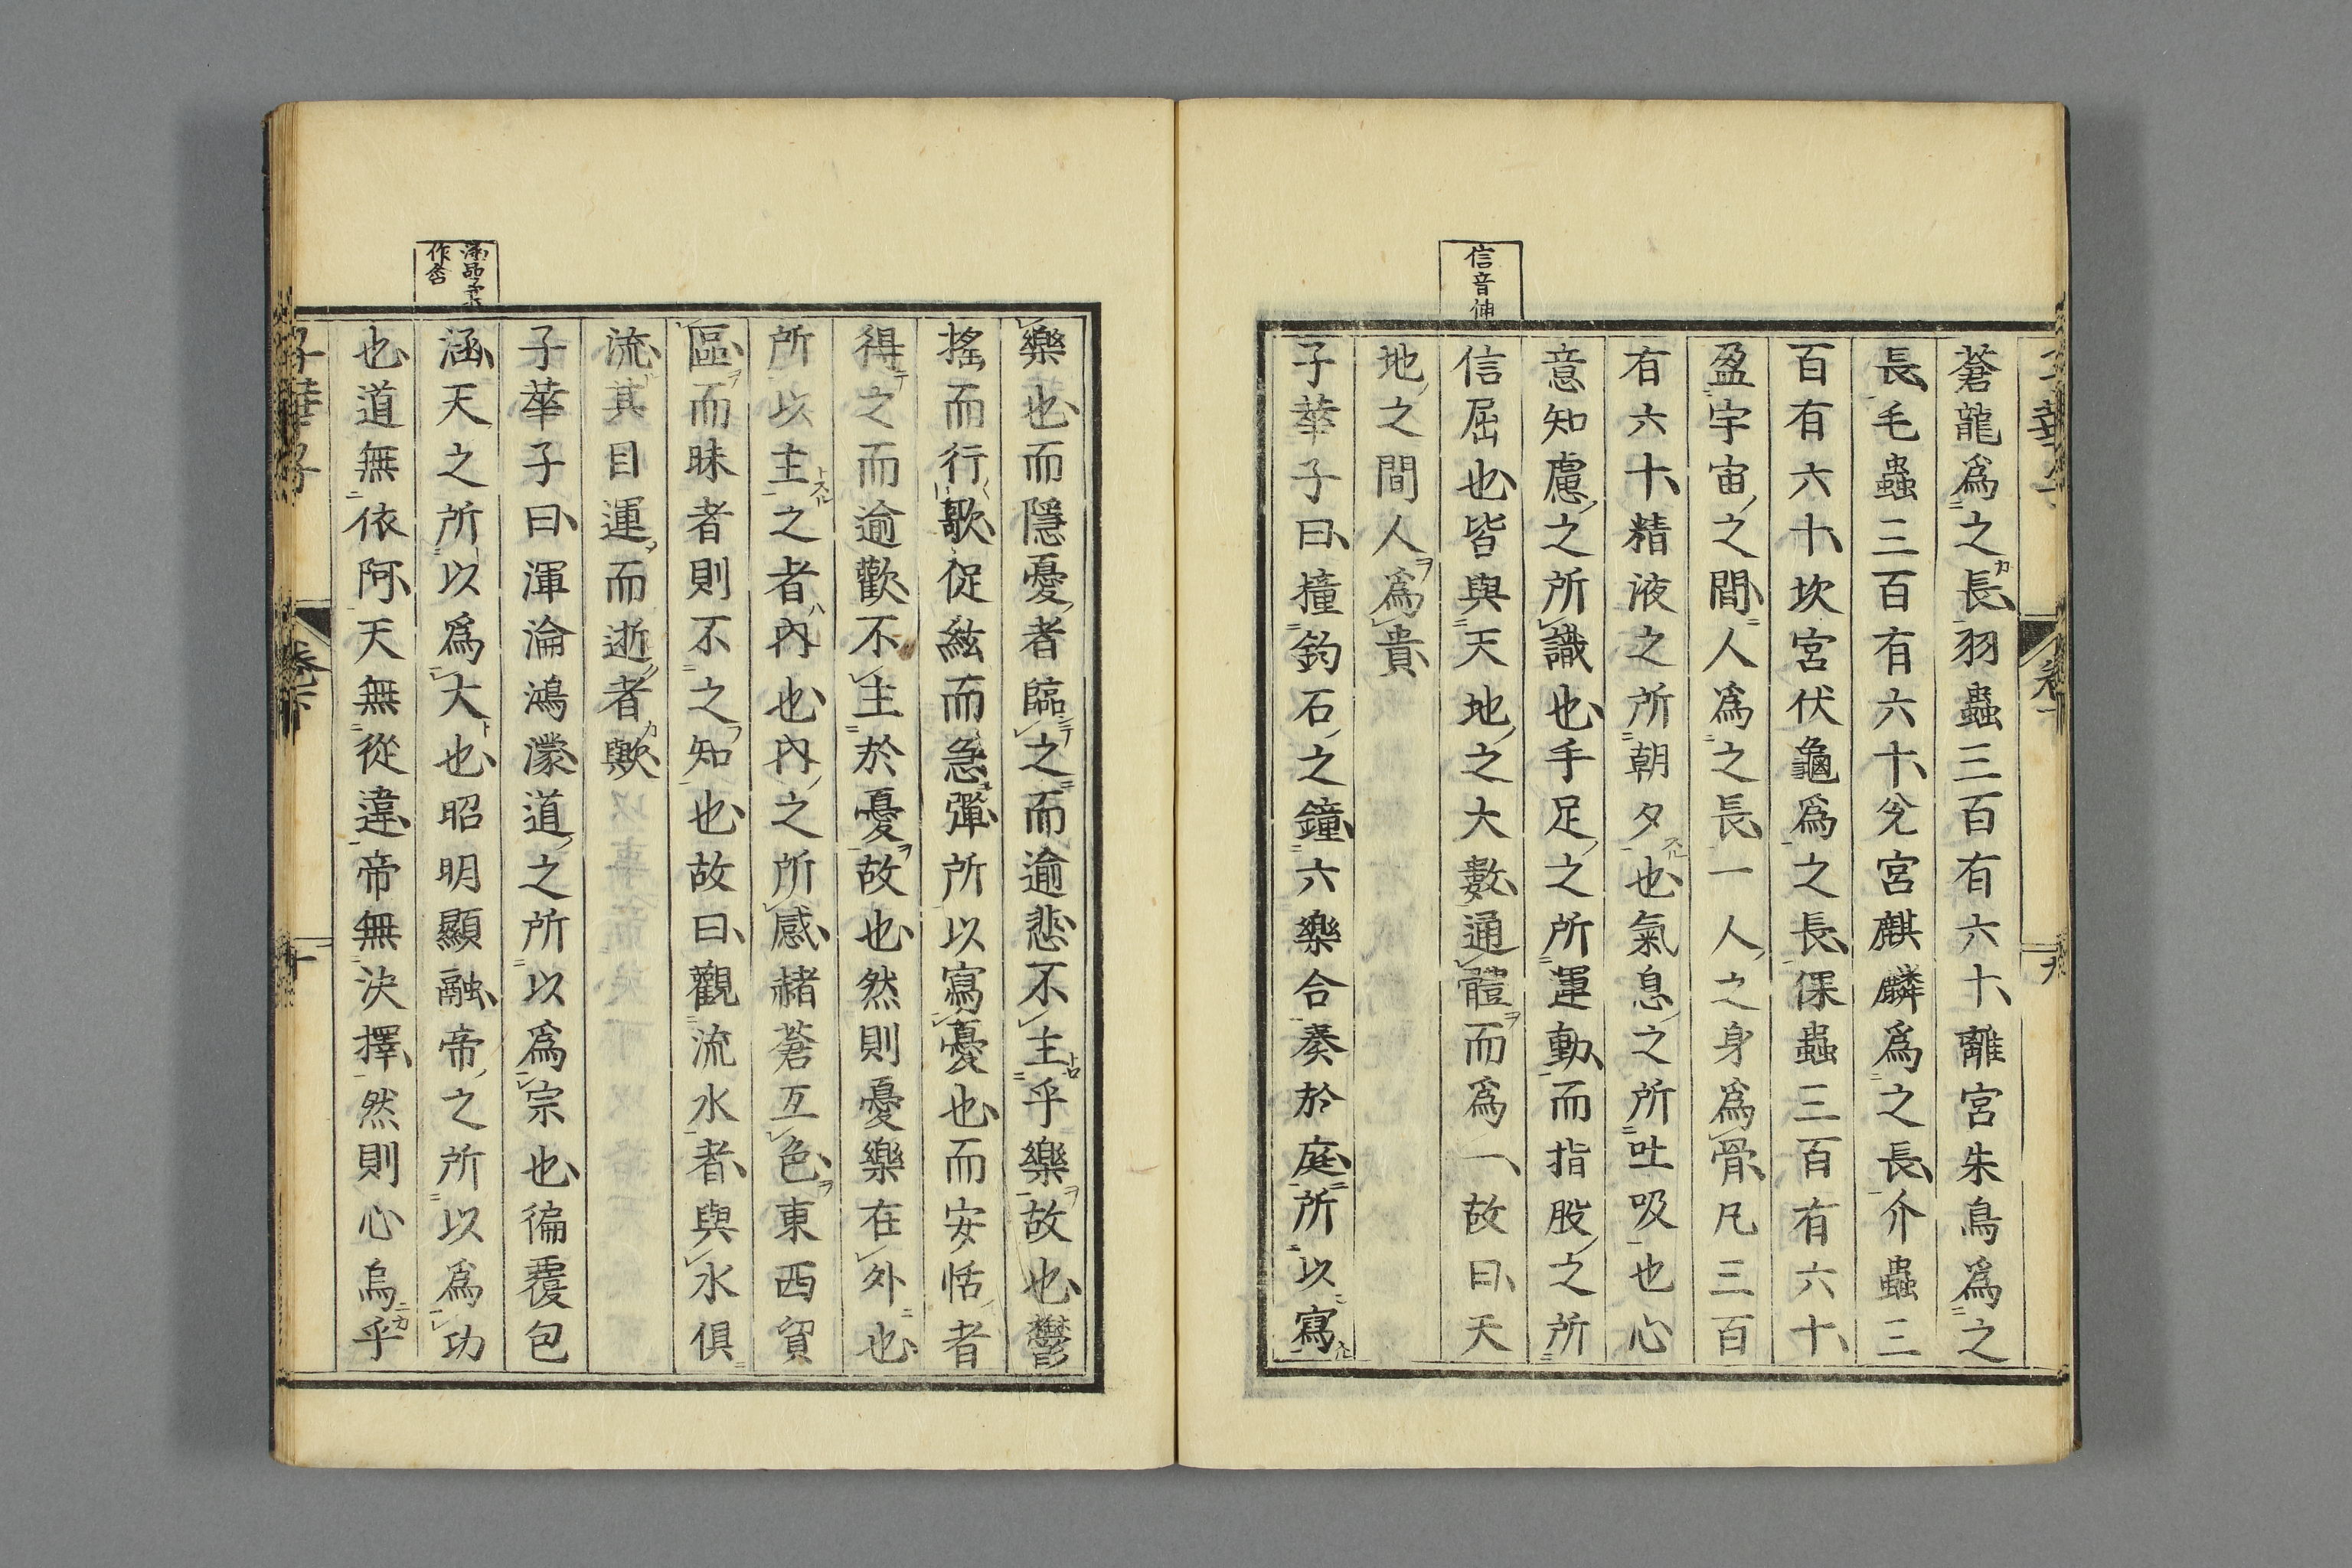 信音伸
蒼龍爲之長羽蟲三百有六十離宮朱鳥爲之
長毛蟲三百有六十兌宮麒麟爲之長介蟲三
百有六十坎宮伏龜爲之長倮蟲三百有六十
盈宇宙之間人爲之長一人之身爲骨凡三百
有六十精液之所朝夕也氣息之所吐吸也心
意知慮之所識也手足之所運動而指股之所
信屈也皆與天地之大數通體而爲一故曰天
地之間人爲貴
子華子曰撞鈞石之鐘六樂合奏於庭所以寫
樂也而隱憂者臨之而逾悲不主乎樂故也鬱
搖而行歌促絃而急彈所以寫憂也而安恬者
得之而逾歡不主於憂故也然則憂樂在外也
所以主之者內也內之所感赭蒼互色東西貿
區而昧者則不之知也故曰觀流水者與水俱
流其目運而逝者歟
子華子曰渾淪鴻濛道之所以爲宗也徧覆包
涵天之所以爲大也昭明顯融帝之所以爲功
也道無依阿天無從違帝無決擇然則心烏乎
子華子
卷下
十